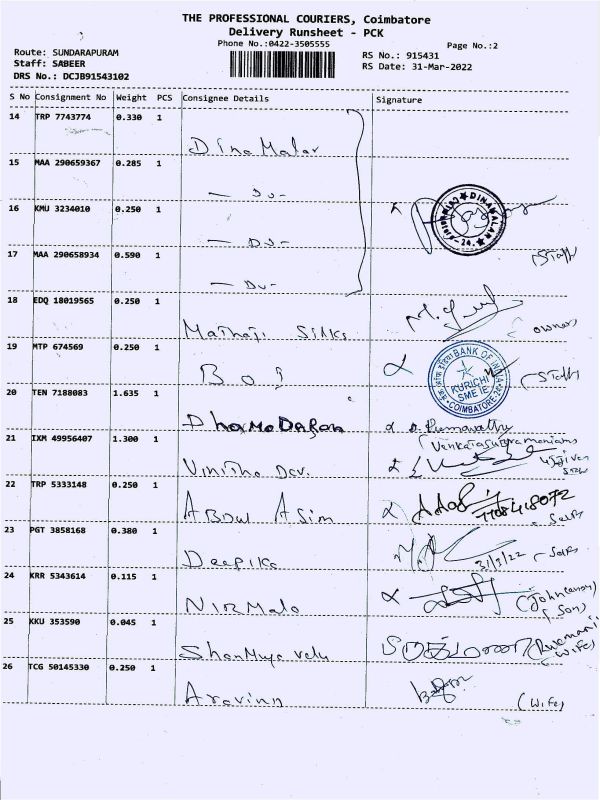 THE PROFESSIONAL COURIERS, Coimbatore
Delivery Runsheet - PCK
Phone No.:0422-3505555
Page No.:2
Route: SUNDARAPURAM
Staff: SABEER
DRS No.: DCJB91543102
RS No.: 915431
RS Date: 31-Mar-2022
S No Consignment No Weight PCS Consignee Details Signature
14 TRP 7743774 0.330 1
Dina Malar
15 MAA 290659367 0.285 1
— Do -
16 KMU 3234010 0.250 1
DINAMALAR
- 24.
— Do -
17 MAA 290658934 0.590 1
Staff
— Do -
18 EDQ 18019565 0.250 1
Mathaji Silks
owner
19 MTP 674569 0.250 1
BOI
BANK OF INDIA
KURICHI
SME IE
COIMBATORE
(Staff
20 TEN 7188083 1.635 1
Dhamodaran
21 IXM 49956407 1.300 1
Vinitha Dev.
22 TRP 5333148 0.250 1
Abdul Asim
7708418072
Self
23 PGT 3858168 0.380 1
Deepika
31/3/22
Self
24 KRR 5343614 0.115 1
Nirmala
(John
Son)
25 KKU 353590 0.045 1
Shanmuga velu
Wife)
26 TCG 50145330 0.250 1
Aravind
(Wife)